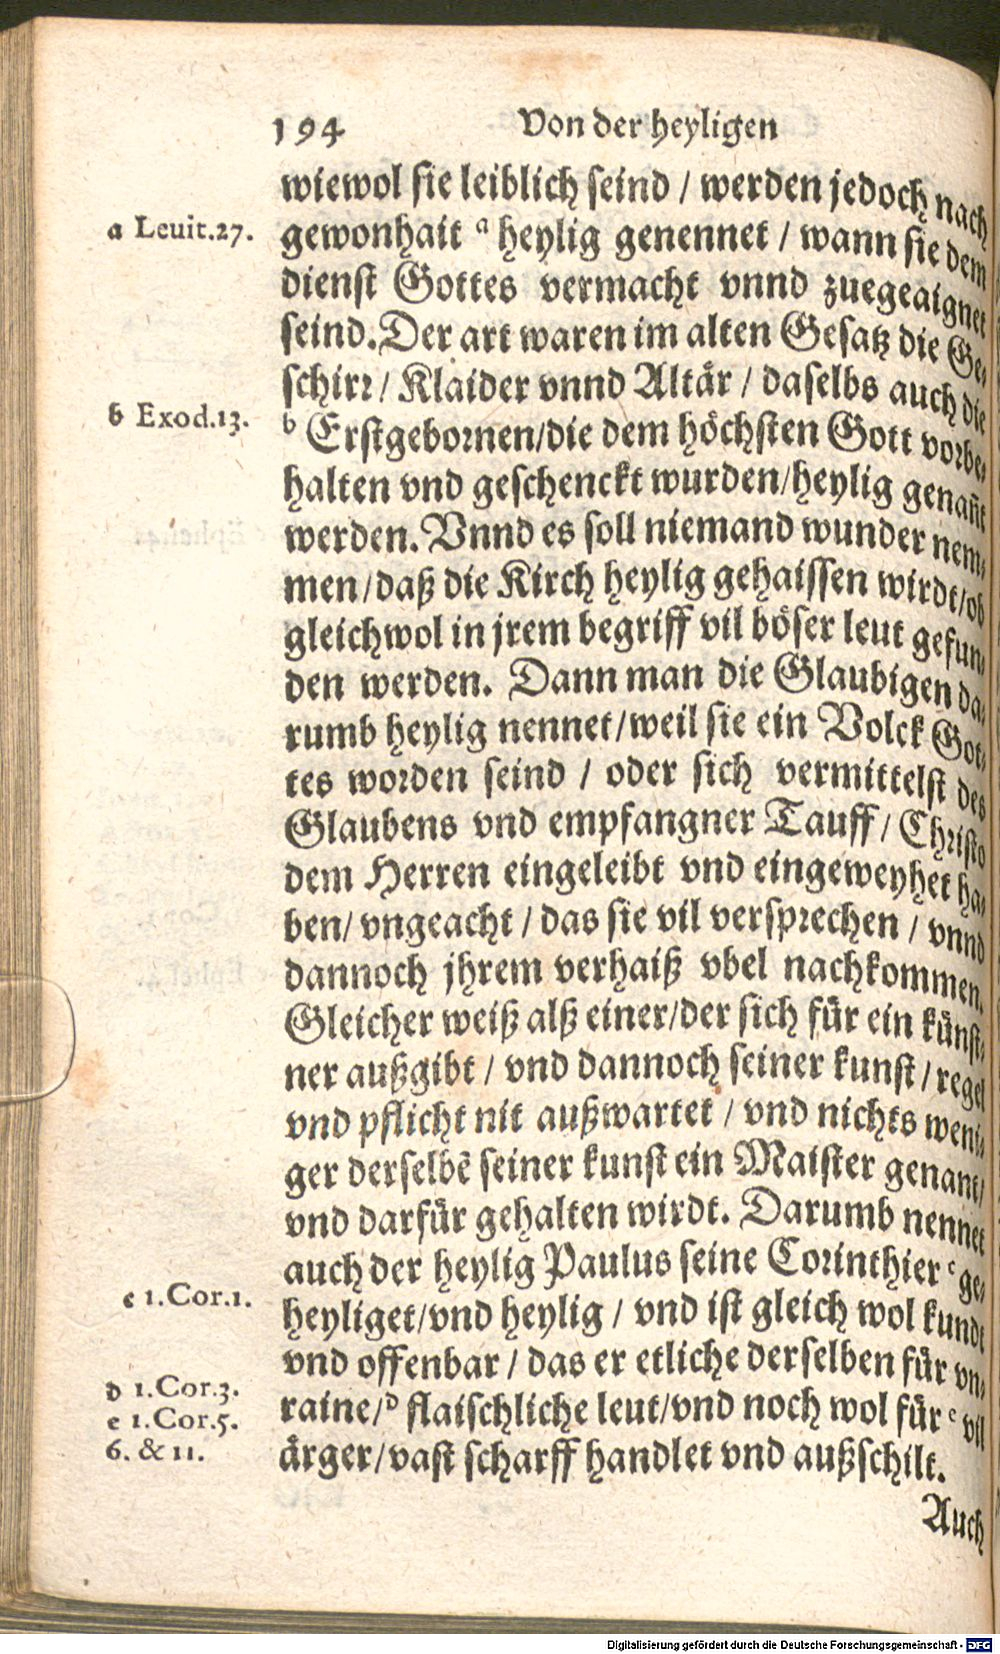 194 Von der heyligen
wiewol sie leiblich seind / werden jedoch nach
a Leuit.27.
gewonhait ª heylig genennet / wann sie dem
dienst Gottes vermacht vnnd zuegeaignet
seind. Der art waren im alten Gesatz die Ge-
schirr / Klaider vnnd Altär / daselbs auch die
b Exod.13.
ᵇ Erstgebornen/die dem höchsten Gott vorbe-
halten vnd geschenckt wurden/heylig genañt
werden. Vnnd es soll niemand wunder nem-
men/daß die Kirch heylig gehaissen wirdt/ob
gleichwol in jrem begriff vil böser leut gefun-
den werden. Dann man die Glaubigen da-
rumb heylig nennet/weil sie ein Volck Got-
tes worden seind / oder sich vermittelst des
Glaubens vnd empfangner Tauff / Christo
dem Herren eingeleibt vnd eingeweyhet ha-
ben/ vngeacht / das sie vil versprechen / vnnd
dannoch jhrem verhaiß vbel nachkommen.
Gleicher weiß alß einer/der sich für ein künst-
ner außgibt / vnd dannoch seiner kunst / regel
vnd pflicht nit außwartet / vnd nichts weni-
ger derselbē seiner kunst ein Maister genant/
vnd darfür gehalten wirdt. Darumb nennet
auch der heylig Paulus seine Corinthier ᶜ ge-
c 1.Cor.1.
heyliget/vnd heylig / vnd ist gleich wol kundt
vnd offenbar / das er etliche derselben für vn-
d 1.Cor.3.
raine/ᵈ flaischliche leut/vnd noch wol für ᵉ vil
e 1.Cor.5.
6. & 11.
ärger/vast scharff handlet vnd außschilt.
Auch
Digitalisierung gefördert durch die Deutsche Forschungsgemeinschaft - DFG